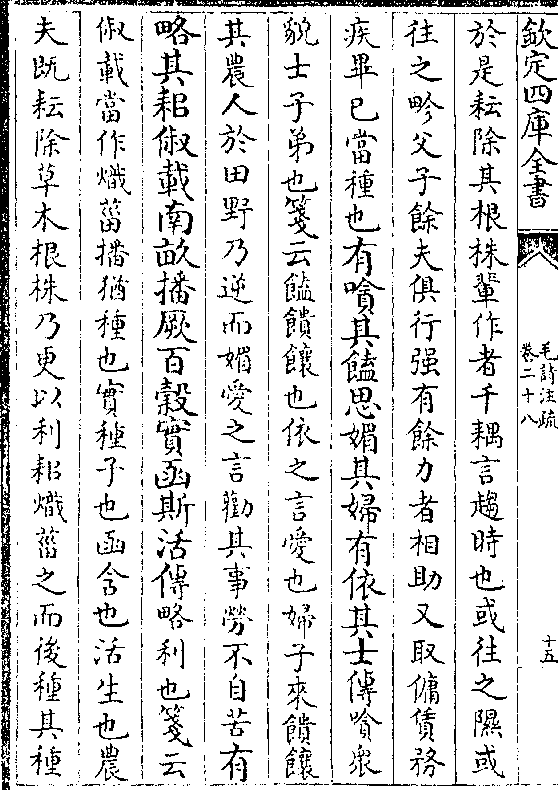 欽定四庫全書
毛詩注疏
卷二十八
十五
於是耘除其根株輩作者千耦言趨時也或往之隰或
往之畛父子餘夫俱行强有餘力者相助又取傭賃務
疾畢已當種也有嗿其饁思媚其婦有依其士傳嗿衆
貌士子弟也箋云饁饋饟也依之言愛也婦子來饋饟
其農人於田野乃逆而媚愛之言勸其事勞不自苦有
略其耜俶載南畝播厥百穀實函斯活傳略利也箋云
俶載當作熾菑播猶種也實種子也函含也活生也農
夫既耘除草木根株乃更以利耜熾菑之而後種其種